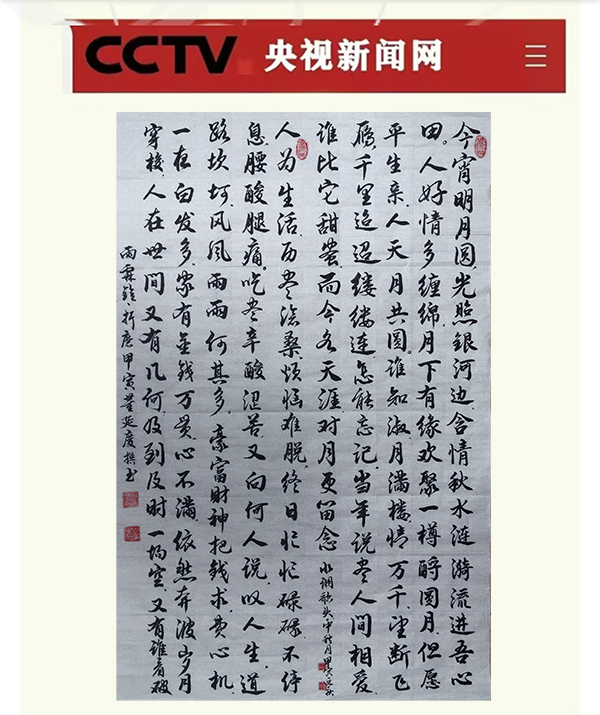 CCTV 央视新闻网
今宵明月圆光照銀河边含情秋水涟漪流进吾心
田。人好情多缠绵月下有缘欢聚一樽酹圆月但愿
平生亲人天月共圆。谁知淑月满楼情万千望断飞
雁千里迢迢缕缕连怎能忘记当年说尽人间相爱
谁比它甜蜜而今各天涯对月更留念
水调歌头中秋月
人为生活历尽沧桑烦恼难脱终日忙忙碌碌不停
息腰酸腿痛。吃尽辛酸涩苦又向何人说叹人生道
路坎坷风风雨雨何其多豪富财神把钱求费心机
一夜白发多家有金钱万贯心不满依然奔波岁月
穿梭人在世间又有几何及到及时一场空又有谁看破
雨霖铃·析愿甲寅董延庆撰书